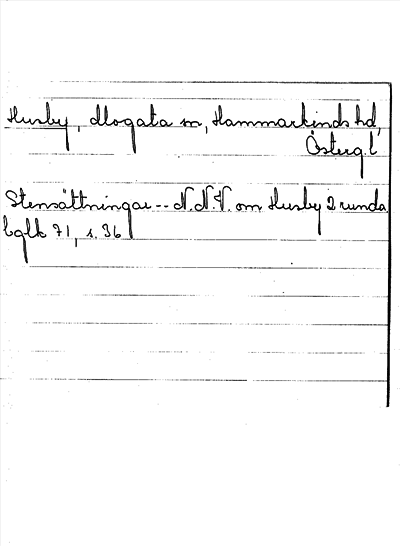 Husby, Mogata sn, Hammarkinds hd,
Österg. l
Stensättningar -- N.N.V. om Husby 2 runda
bglk 71, s. 36